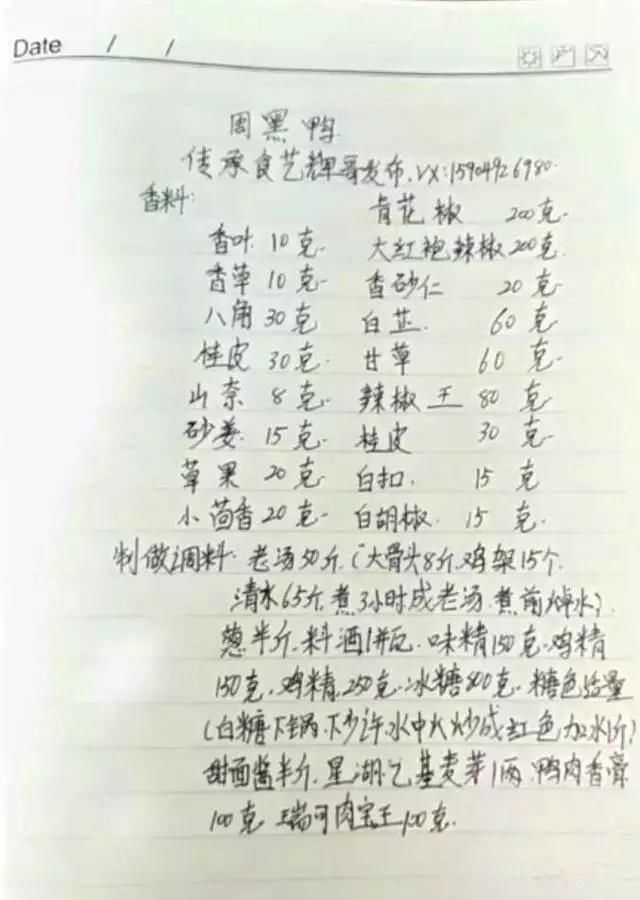 Date / /
周黑鸭
传承食艺辉哥发布.VX:15904926980.
香料: 青花椒 200克.
香叶 10克. 大红袍辣椒200克.
香草 10克. 香砂仁 20克.
八角 30克 白芷. 60克.
桂皮 30克. 甘草 60克.
山奈 8克. 辣椒王 80克.
砂姜. 15克. 桂皮 30克.
草果 20克 白扣. 15克
小茴香 20克. 白胡椒. 15克.
制做调料: 老汤50斤.(大骨头8斤.鸡架15个.
清水65斤.煮3小时成老汤.煮前焯水).
葱半斤.料酒1瓶.味精150克.鸡精
150克.鸡精.250克.冰糖800克.糖色适量
(白糖下锅.下少许.水中火炒成红色加水1斤)
甜面酱半斤.星湖乙基麦芽1两.鸭肉香膏
100克 瑞可肉宝王100克.